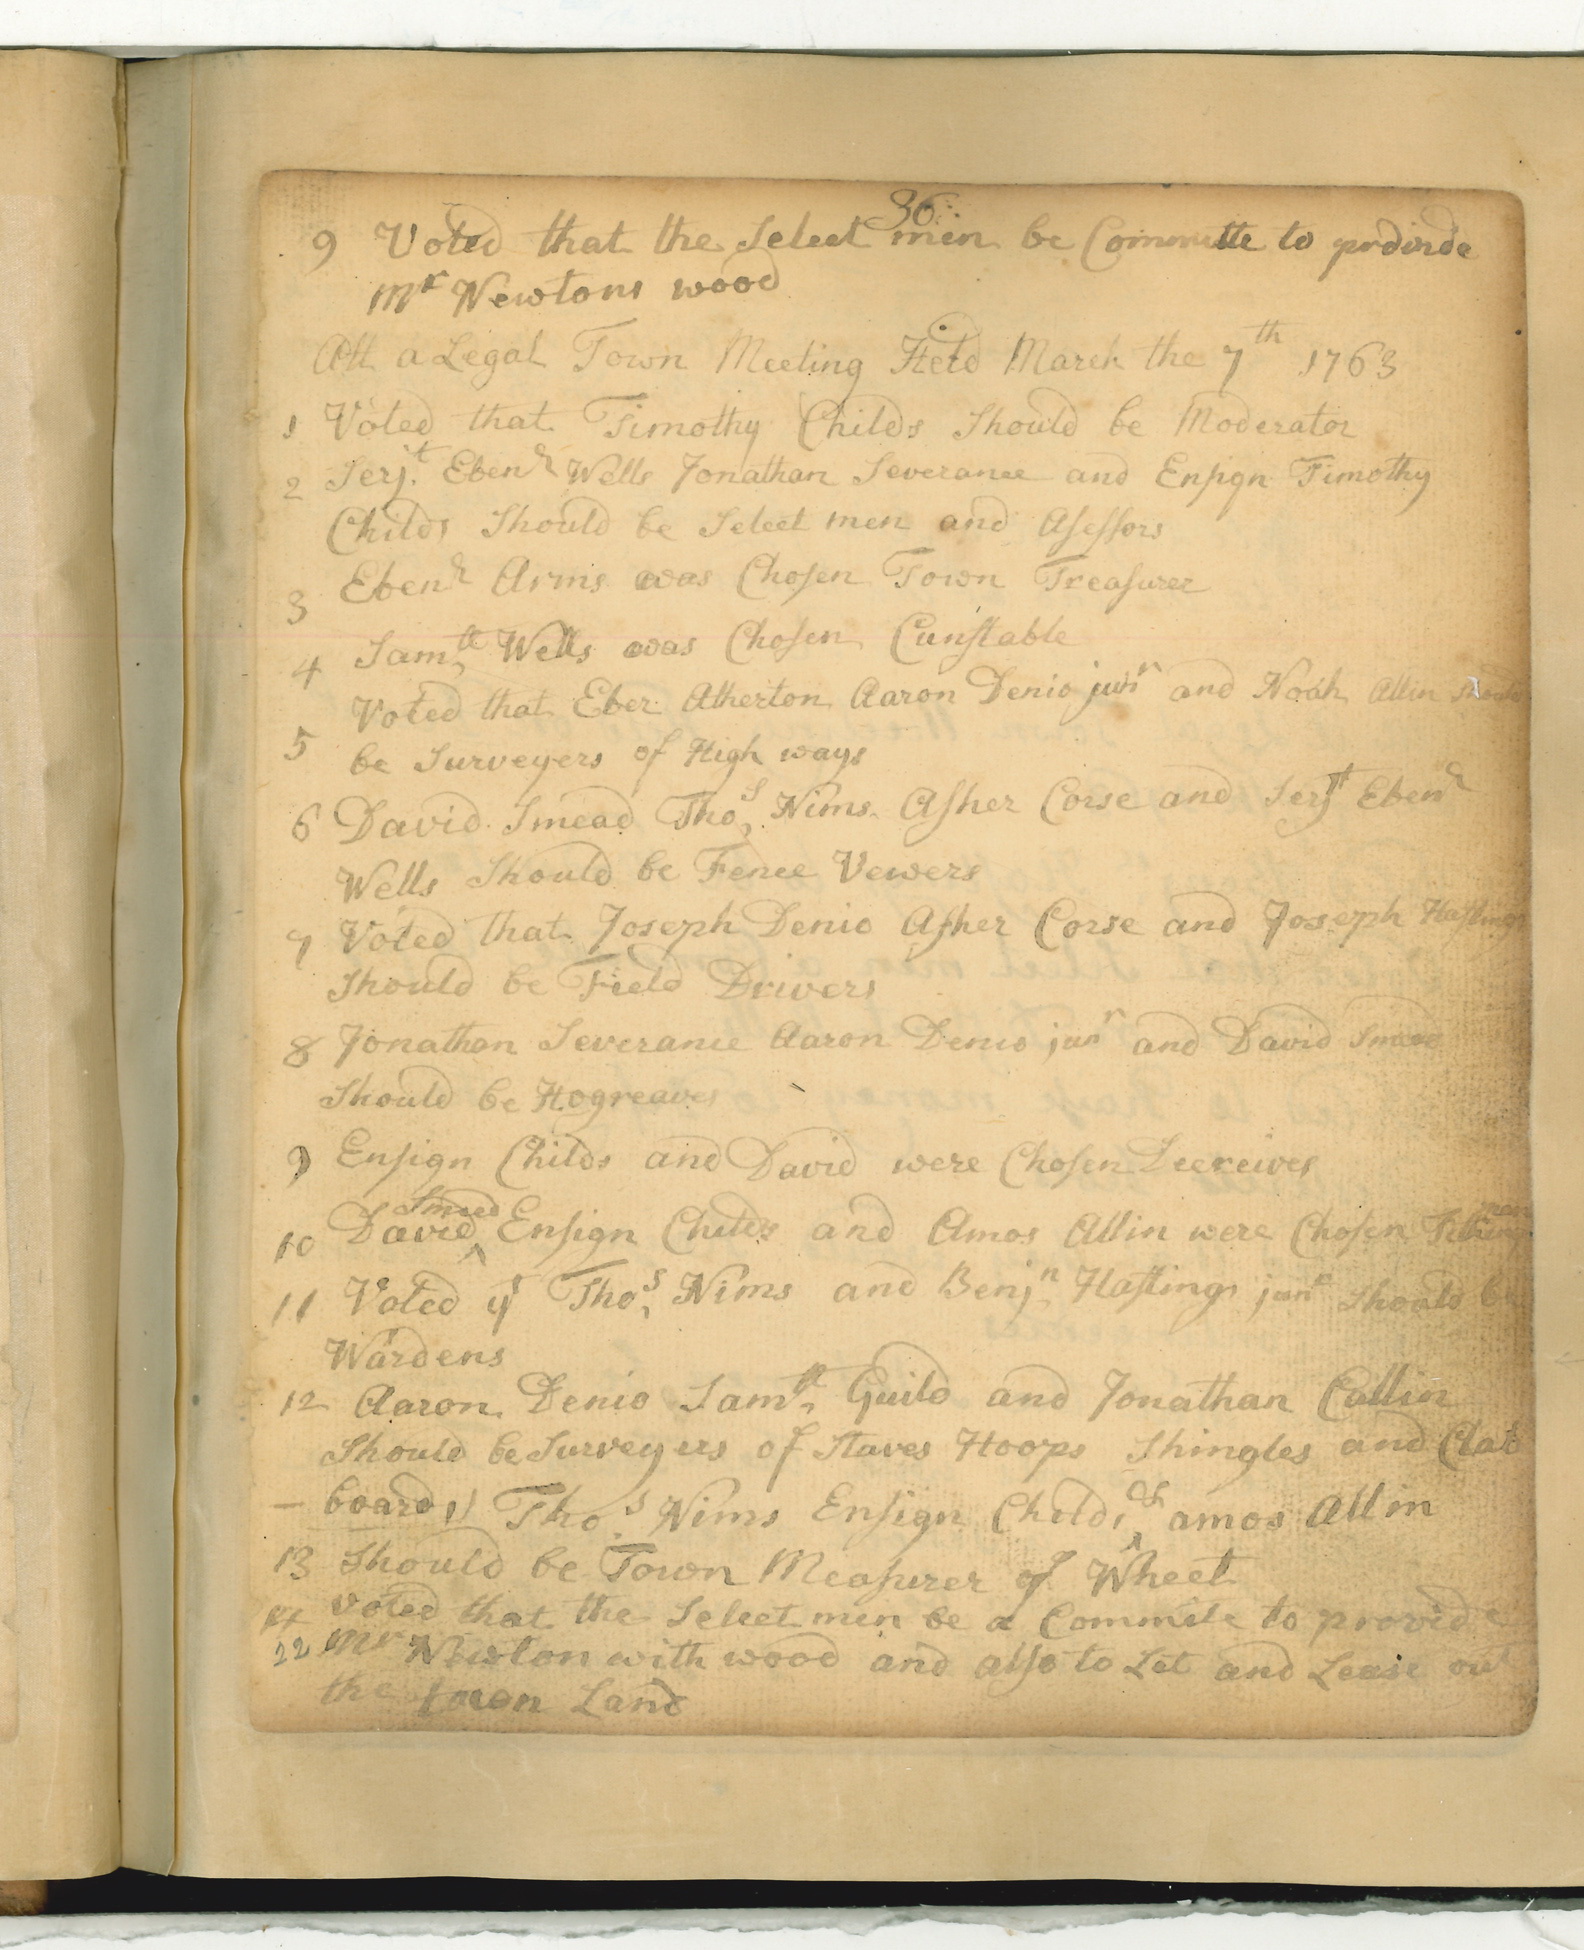 36
9 Voted that the Select men be Committe to prdvide
Mr Newtons wood
Att a Legal Town Meeting Held March the 7th 1763
1 Voted that Timothy Childs Should be Moderator
2 Serjt Ebenr Wells Jonathan Severance and Ensign Timothy
Childs Should be Select men and Asessors
3 Ebenr Arms was Chosen Town Treasurer
4 Samll Wells was Chosen Cunstable
Voted that Eber Atherton Aaron Denio junr and Noah Allin should
5 be Surveyers of High ways
6 David Smead Thos Nims Asher Corse and Serjt Ebenr
Wells Should be Fence Vewers
7 Voted that Joseph Denio Asher Corse and Joseph Hastings
Should be Field Drivers
8 Jonathan Severance Aaron Denio junr and David Smead
Should be Hogreaves
9 Ensign Childs and David were Chosen Deereives
10 David Smead Ensign Childs and Amos Allin were Chosen
11 Voted yt Thos Nims and Benjn Hastings junr Should be
Wardens
12 Aaron Denio Samll Guild and Jonathan Catlin
Should be Surveyers of Staves Hoops Shingles and Clab
board Thos Nims Ensign Childs & amos Allin
13 Should be Town Measurer of Wheet
14 Voted that the Select men be a Commite to provide
22 Mr Newton with wood and also to Let and Lease out
the town Land